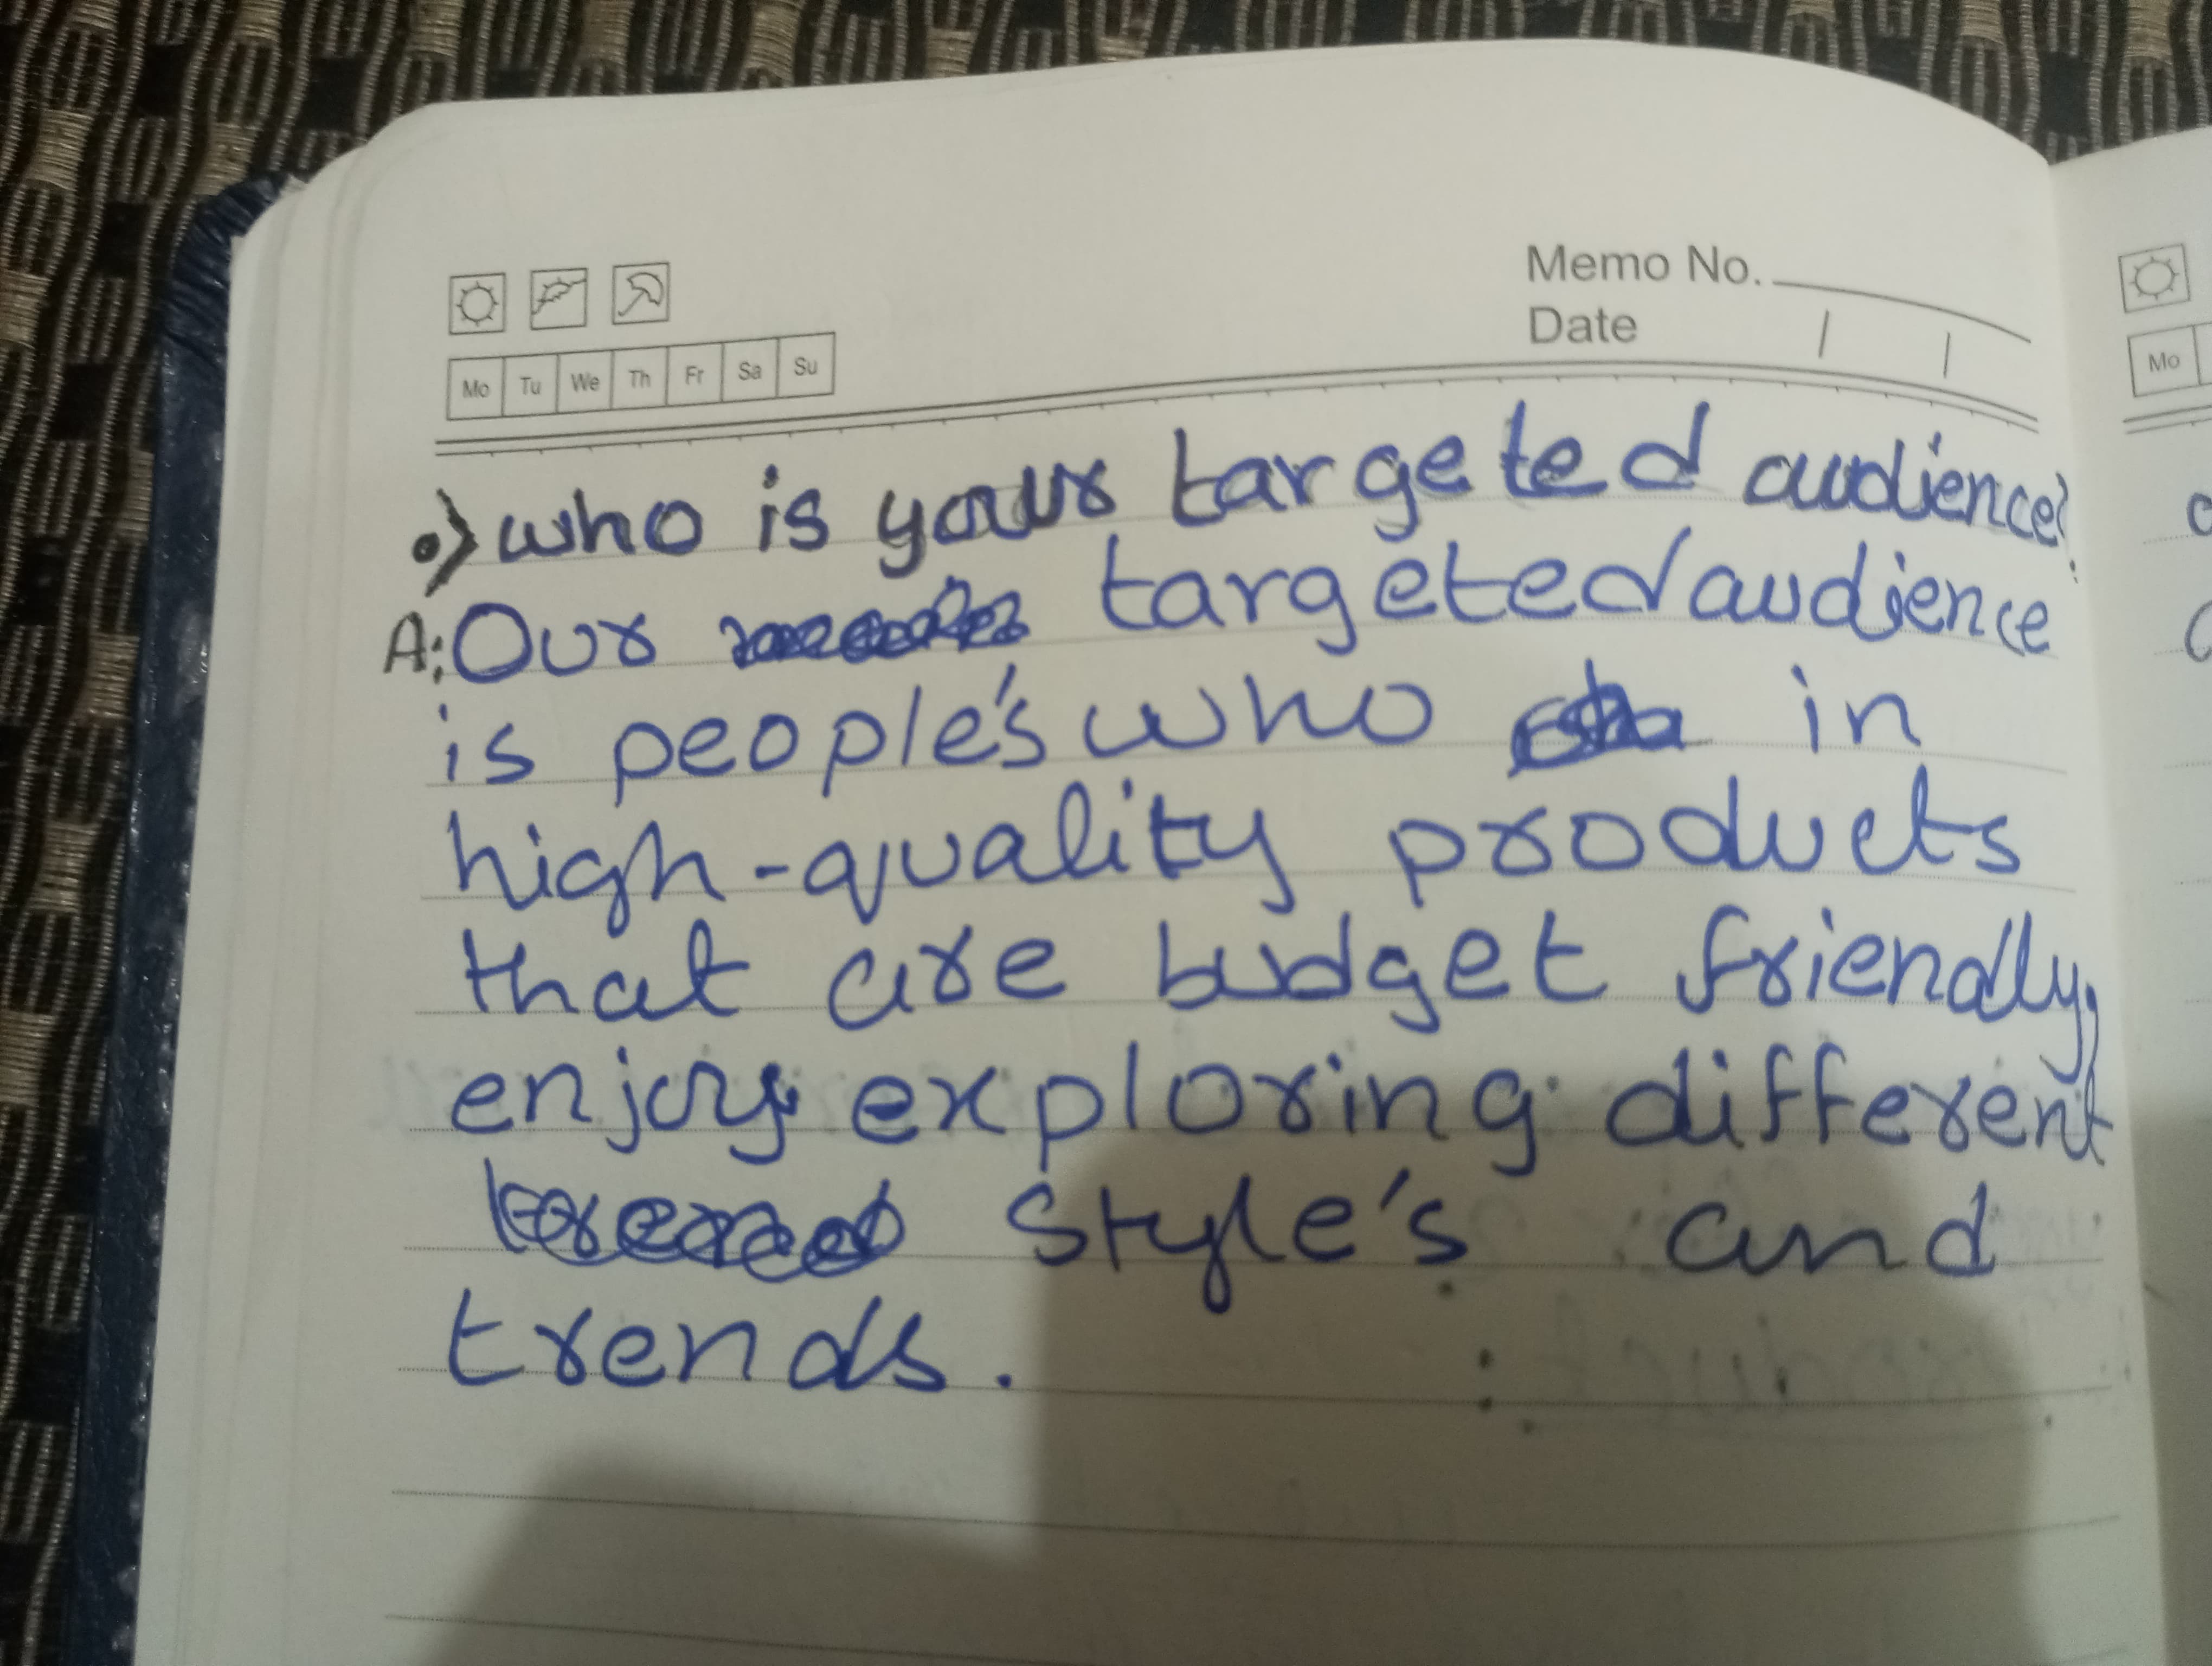 Memo No.
Date / /
Mo Tu We Th Fr Sa Su
Mo
who is your targeted audience?
A: Our targeted audience
is people's who in
high-quality products
that are budget friendly,
enjoy exploring different
style's and
trends.